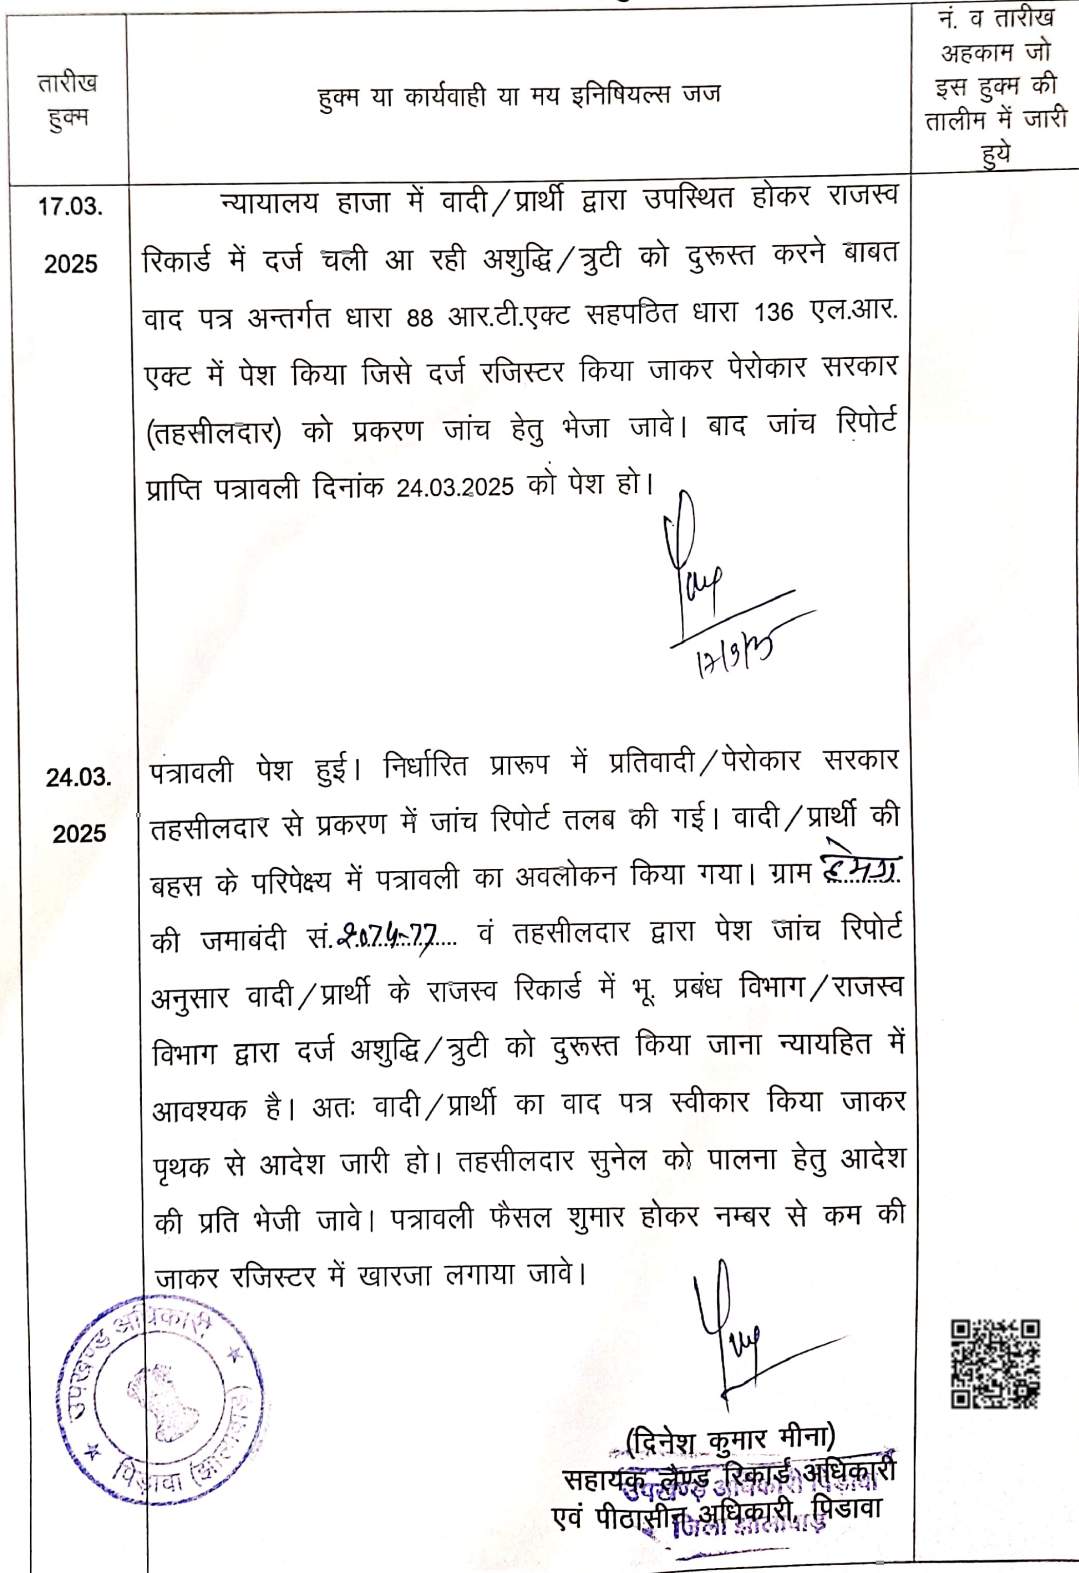 नं. व तारीख
अहकाम जो
तारीख
हुक्म
हुक्म या कार्यवाही या मय इनिषियल्स जज
इस हुक्म की
तालीम में जारी
हुये
17.03.
2025
न्यायालय हाजा में वादी/प्रार्थी द्वारा उपस्थित होकर राजस्व
रिकार्ड में दर्ज चली आ रही अशुद्धि/त्रुटी को दुरूस्त करने बाबत
वाद पत्र अन्तर्गत धारा 88 आर.टी.एक्ट सहपठित धारा 136 एल.आर.
एक्ट में पेश किया जिसे दर्ज रजिस्टर किया जाकर पेरोकार सरकार
(तहसीलदार) को प्रकरण जांच हेतु भेजा जावे। बाद जांच रिपोर्ट
प्राप्ति पत्रावली दिनांक 24.03.2025 को पेश हो।
17/3/25
24.03.
2025
पत्रावली पेश हुई। निर्धारित प्रारूप में प्रतिवादी/पेरोकार सरकार
तहसीलदार से प्रकरण में जांच रिपोर्ट तलब की गई। वादी/प्रार्थी की
बहस के परिपेक्ष्य में पत्रावली का अवलोकन किया गया। ग्राम
की जमाबंदी सं.2074-77 वं तहसीलदार द्वारा पेश जांच रिपोर्ट
अनुसार वादी/प्रार्थी के राजस्व रिकार्ड में भू. प्रबंध विभाग/राजस्व
विभाग द्वारा दर्ज अशुद्धि/त्रुटी को दुरूस्त किया जाना न्यायहित में
आवश्यक है। अतः वादी/प्रार्थी का वाद पत्र स्वीकार किया जाकर
पृथक से आदेश जारी हो। तहसीलदार सुनेल को पालना हेतु आदेश
की प्रति भेजी जावे। पत्रावली फैसल शुमार होकर नम्बर से कम की
जाकर रजिस्टर में खारजा लगाया जावे।
उपखण्ड अधिकारी
पिड़ावा (झालावाड़)
(दिनेश कुमार मीना)
सहायक लैण्ड रिकार्ड अधिकारी
उपखण्ड अधिकारी पिड़ावा
एवं पीठासीन अधिकारी, पिडावा
जिला झालावाड़